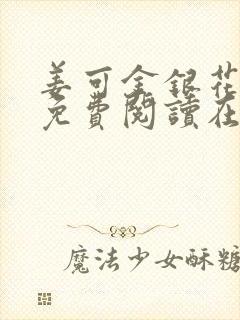 姜可金銀花
免費閱讀在
魔法少女酥糖